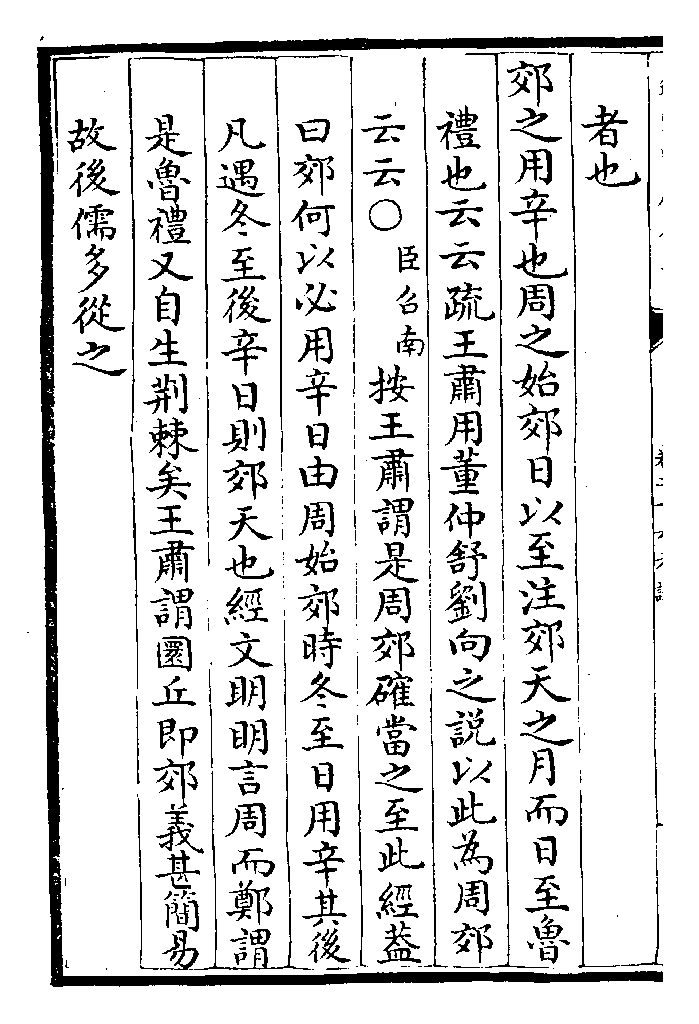 者也
郊之用辛也周之始郊日以至注郊天之月而日至魯
禮也云云疏王肅用董仲舒劉向之說以此為周郊
云云○臣召南按王肅謂是周郊確當之至此經葢
曰郊何以必用辛日由周始郊時冬至日用辛其後
凡遇冬至後辛日則郊天也經文明明言周而鄭謂
是魯禮又自生荆棘矣王肅謂圜丘即郊義甚簡易
故後儒多從之